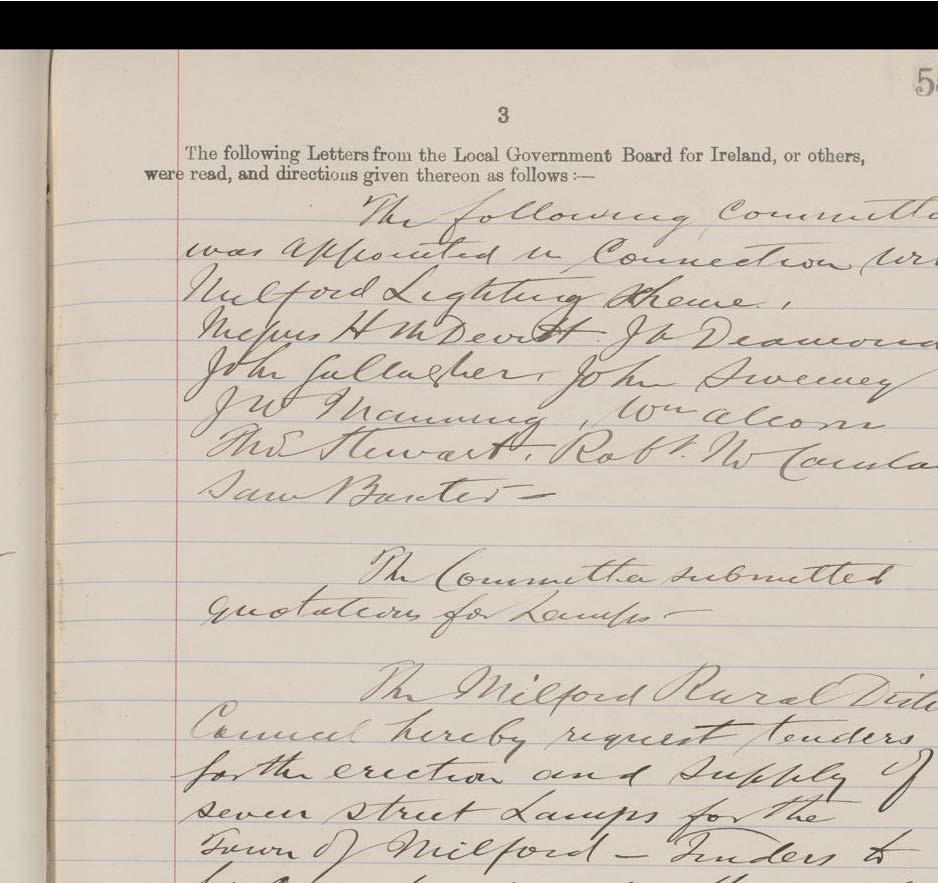 5
3
The following Letters from the Local Government Board for Ireland, or others,
were read, and directions given thereon as follows :—
The following Committe
was appointed in Connection wi
Milford Lighting Scheme.
Messrs H McDevitt. Jn Diamond
John Gallagher, John Sweeney
JW Manning, Wm Alcorn
Thos Stewart, Robt. McCausla
Saml Baxter —
The Committee submitted
quotations for Lamps —
The Milford Rural Distr
Council hereby request tenders
for the erection and supply of
seven street Lamps for the
Town of Milford — Tenders to